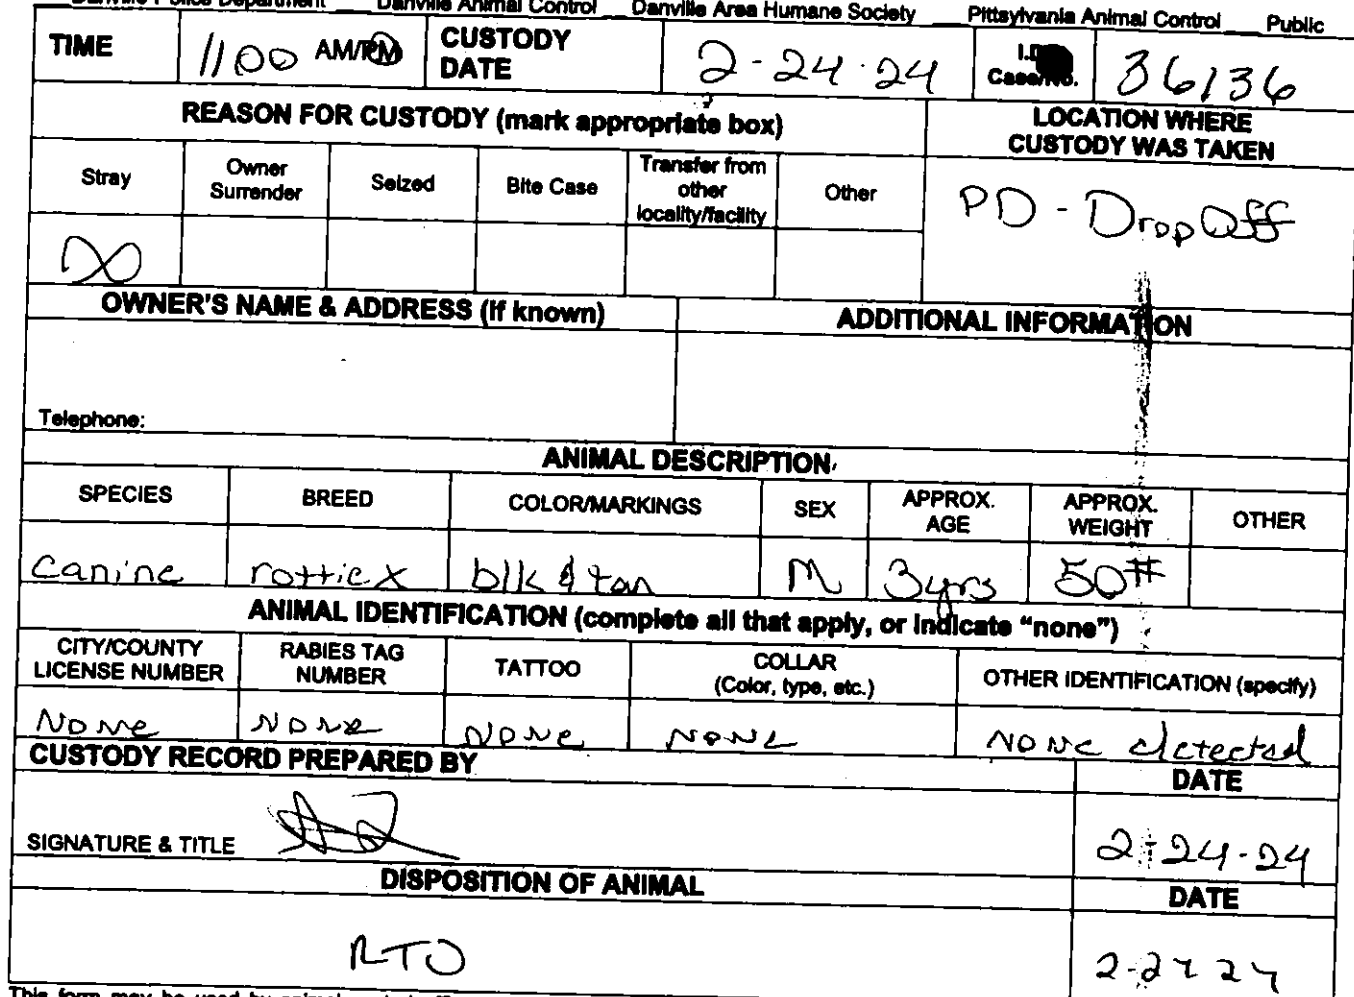 Danville Police Department __ Danville Animal Control __ Danville Area Humane Society __ Pittsylvania Animal Control __ Public
TIME 1100 AM/PM CUSTODY DATE 2-24-24 I.D. Case/No. 36136
REASON FOR CUSTODY (mark appropriate box) LOCATION WHERE CUSTODY WAS TAKEN
Stray Owner Surrender Seized Bite Case Transfer from other locality/facility Other PD - Drop Off
X
OWNER'S NAME & ADDRESS (if known) ADDITIONAL INFORMATION
Telephone:
ANIMAL DESCRIPTION
SPECIES BREED COLOR/MARKINGS SEX APPROX. AGE APPROX. WEIGHT OTHER
canine rottie X blk & tan M 3yrs 50#
ANIMAL IDENTIFICATION (complete all that apply, or indicate "none")
CITY/COUNTY LICENSE NUMBER RABIES TAG NUMBER TATTOO COLLAR (Color, type, etc.) OTHER IDENTIFICATION (specify)
None None None None None detected
CUSTODY RECORD PREPARED BY DATE
SIGNATURE & TITLE 2-24-24
DISPOSITION OF ANIMAL DATE
RTO
This form may be used by animal